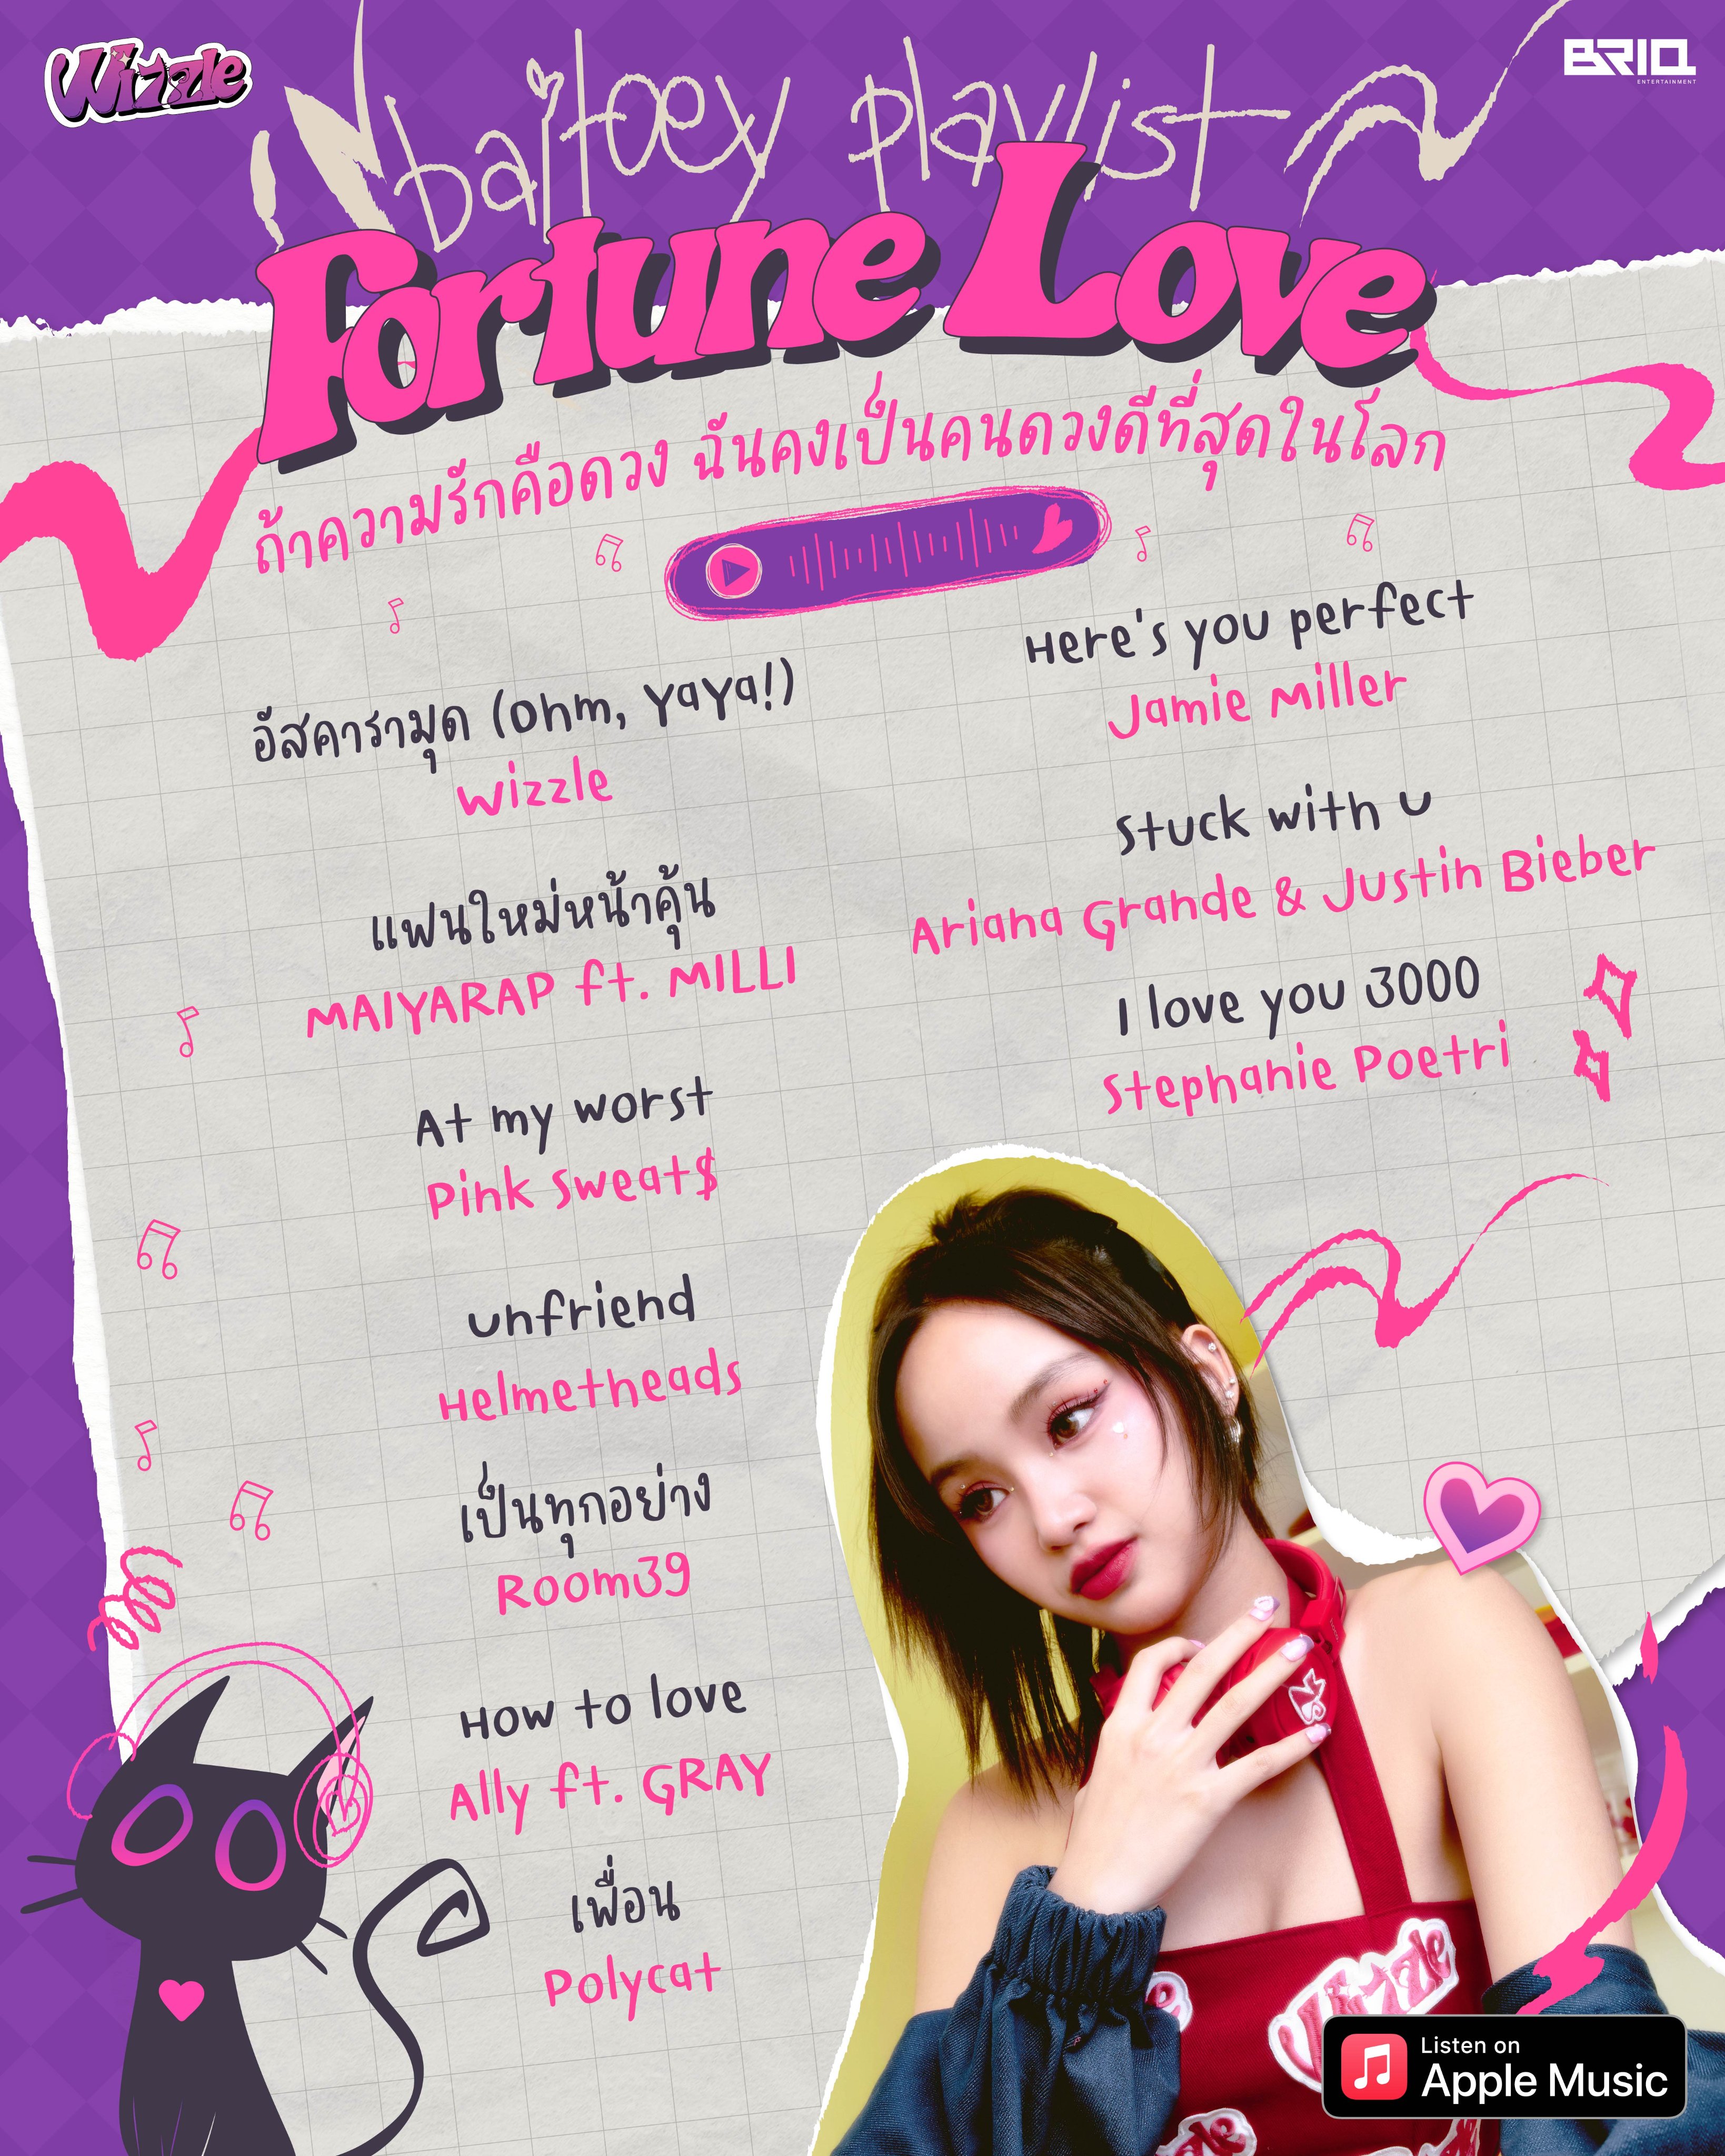 Wizzle
BRIQ
ENTERTAINMENT
baitoey playlist
Fortune Love
ถ้าความรักคือดวง ฉันคงเป็นคนดวงดีที่สุดในโลก
อัสคารามุด (Ohm, YaYa!)
Wizzle
แฟนใหม่หน้าคุ้น
MAIYARAP ft. MILLI
At my worst
Pink Sweat$
unfriend
Helmetheads
เป็นทุกอย่าง
Room39
How to love
Ally ft. GRAY
เพื่อน
Polycat
Here's you perfect
Jamie Miller
Stuck with U
Ariana Grande & Justin Bieber
I love you 3000
Stephanie Poetri
Wizzle
Listen on
Apple Music